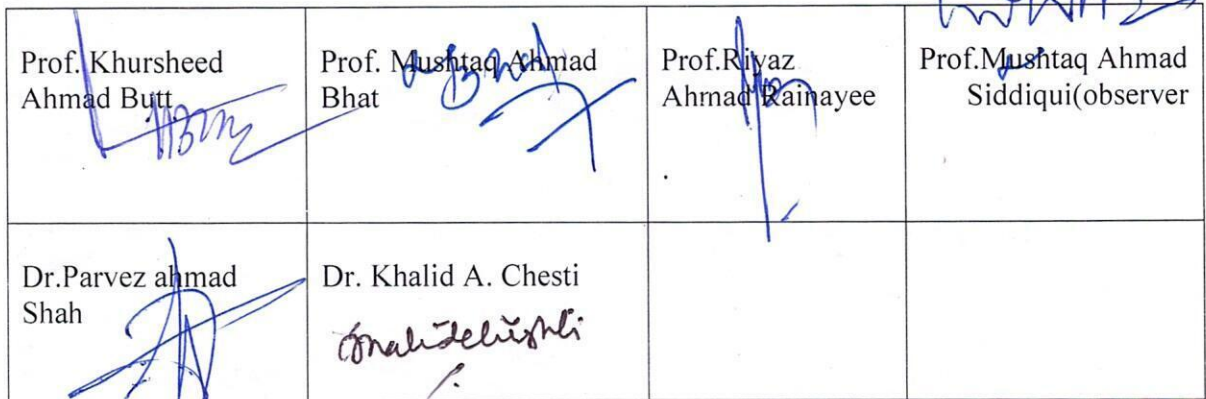 Prof. Khursheed
Ahmad Butt
Prof. Mushtaq Ahmad
Bhat
Prof.Riyaz
Ahmad Rainayee
Prof.Mushtaq Ahmad
Siddiqui(observer
Dr.Parvez ahmad
Shah
Dr. Khalid A. Chesti